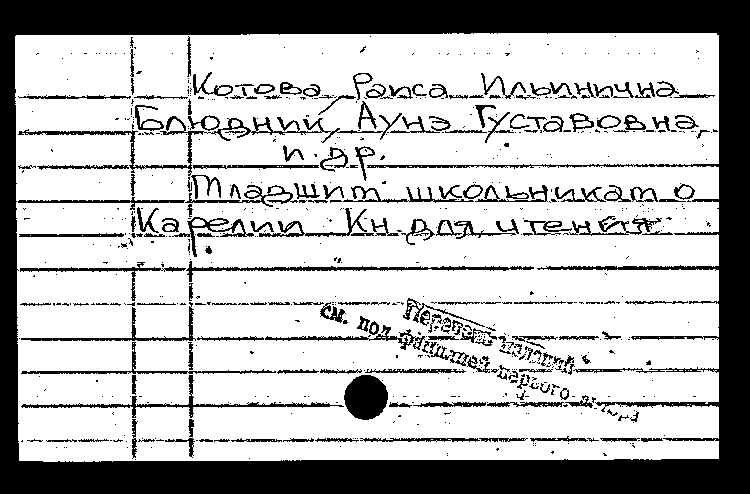 Котова, Раиса Ильинична
Блюдний, Ауна Густавовна,
и др.
Младшим школьникам о
Карелии Кн. для чтения
Перечень изданий
см. под фамилией первого автора